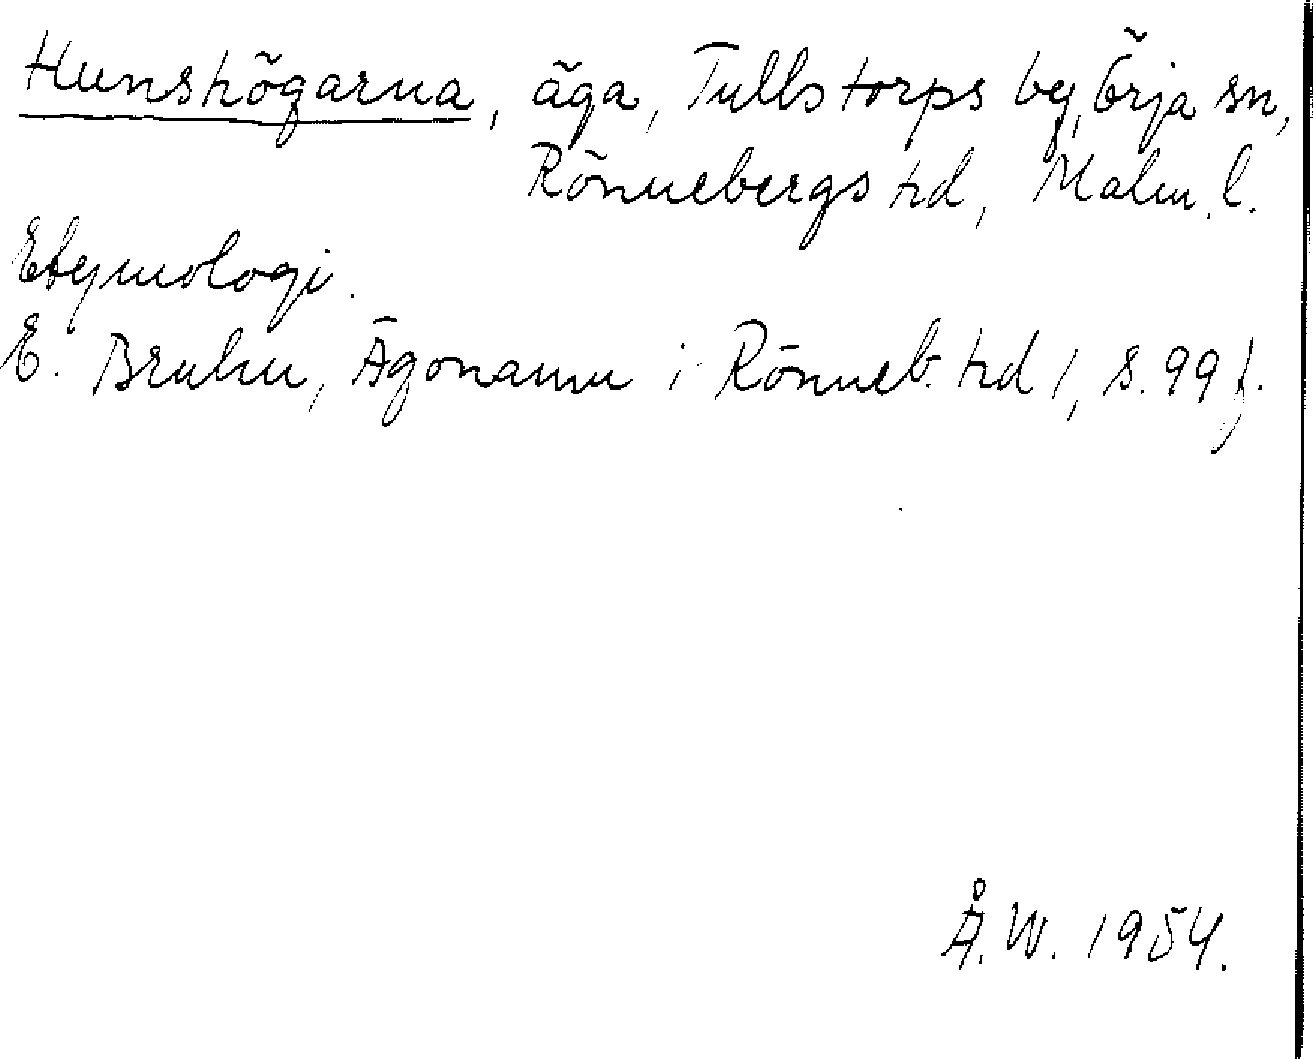 Hunshögarna, äga, Tullstorps by, Örja sn,
Rönnebergs hd, Malm. l.
Etymologi.
E. Bruhn, Ägonamn i Rönneb. hd 1, s. 99 f.
Å. W. 1954.